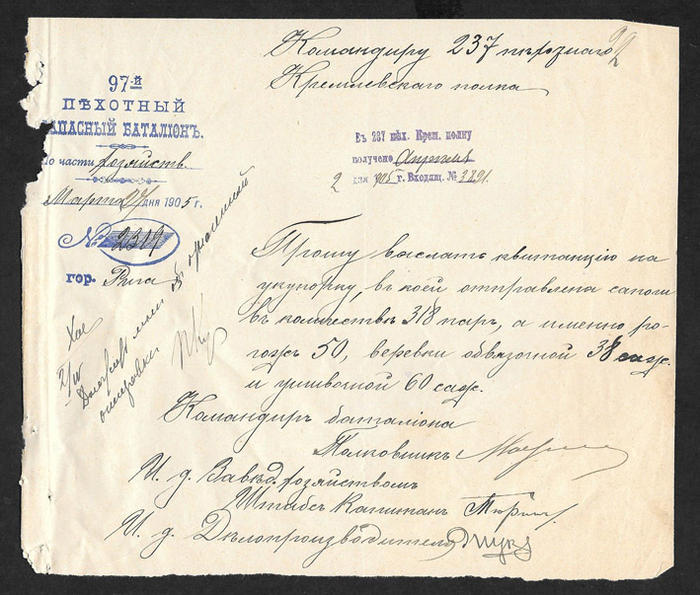 Командиру 237 пѣхотнаго
Кремлевскаго полка
97-й
ПѢХОТНЫЙ
ЗАПАСНЫЙ БАТАЛІОНЪ.
По части хозяйств.
Марта 27 дня 1905 г.
№ 2319
гор. Рига
Въ 237 пѣх. Крем. полку
получено Апрѣля
2 дня 1905 г. Входящ. № 3891.
Прошу выслать квитанцію на
укупорку, въ коей отправлена сапоги
въ количествѣ 318 паръ, а именно ро-
гожъ 50, веревки обвязочной 38 саж.
и ушивочной 60 саж.
Командиръ баталіона
Полковникъ
И. д. Завѣд. хозяйствомъ
Штабсъ Капитанъ
И. д. Дѣлопроизводителя
Хоз
2/IV